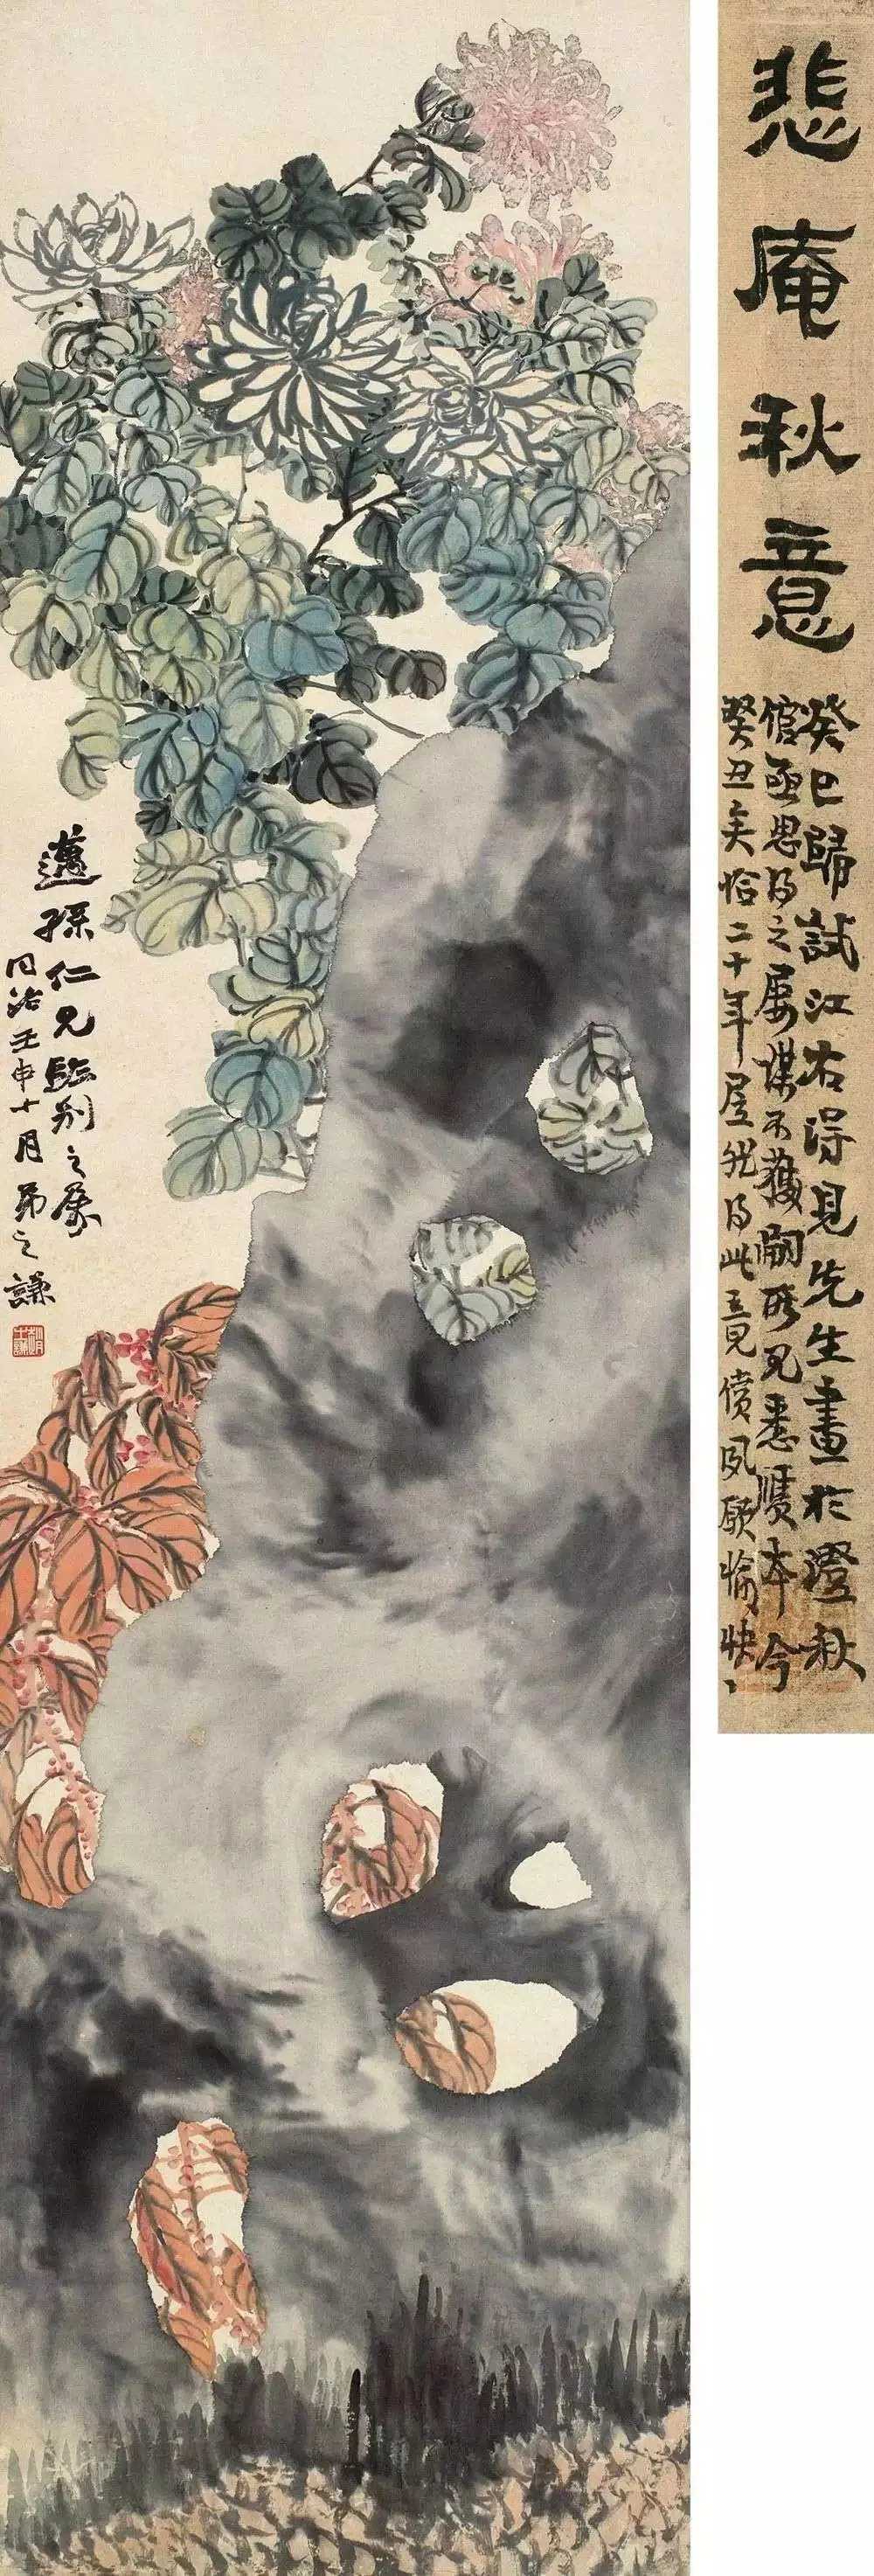 悲庵秋意
癸巳歸試江右得見先生畫於澄秋
倌亟思得之屢謀不獲嗣所見悉贋本今
癸丑矣恰二十年屋兒得此五見償夙願愉快
邁孫仁兄臨別之屬
同治壬申十月弟之謙